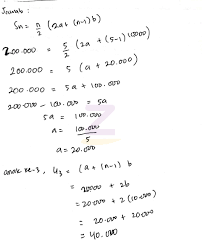 Jawab:
Sn = n/2 (2a + (n-1) b)
200.000 = 5/2 (2a + (5-1) 10000)
200.000 = 5 (a + 20.000)
200.000 = 5a + 100.000
200.000 - 100.000 = 5a
5a = 100.000
a = 100.000/5
a = 20.000
anak ke-3, U3 = (a + (n-1) b
= 20000 + 2b
= 20.000 + 2 (10.000)
= 20.000 + 20.000
= 40.000